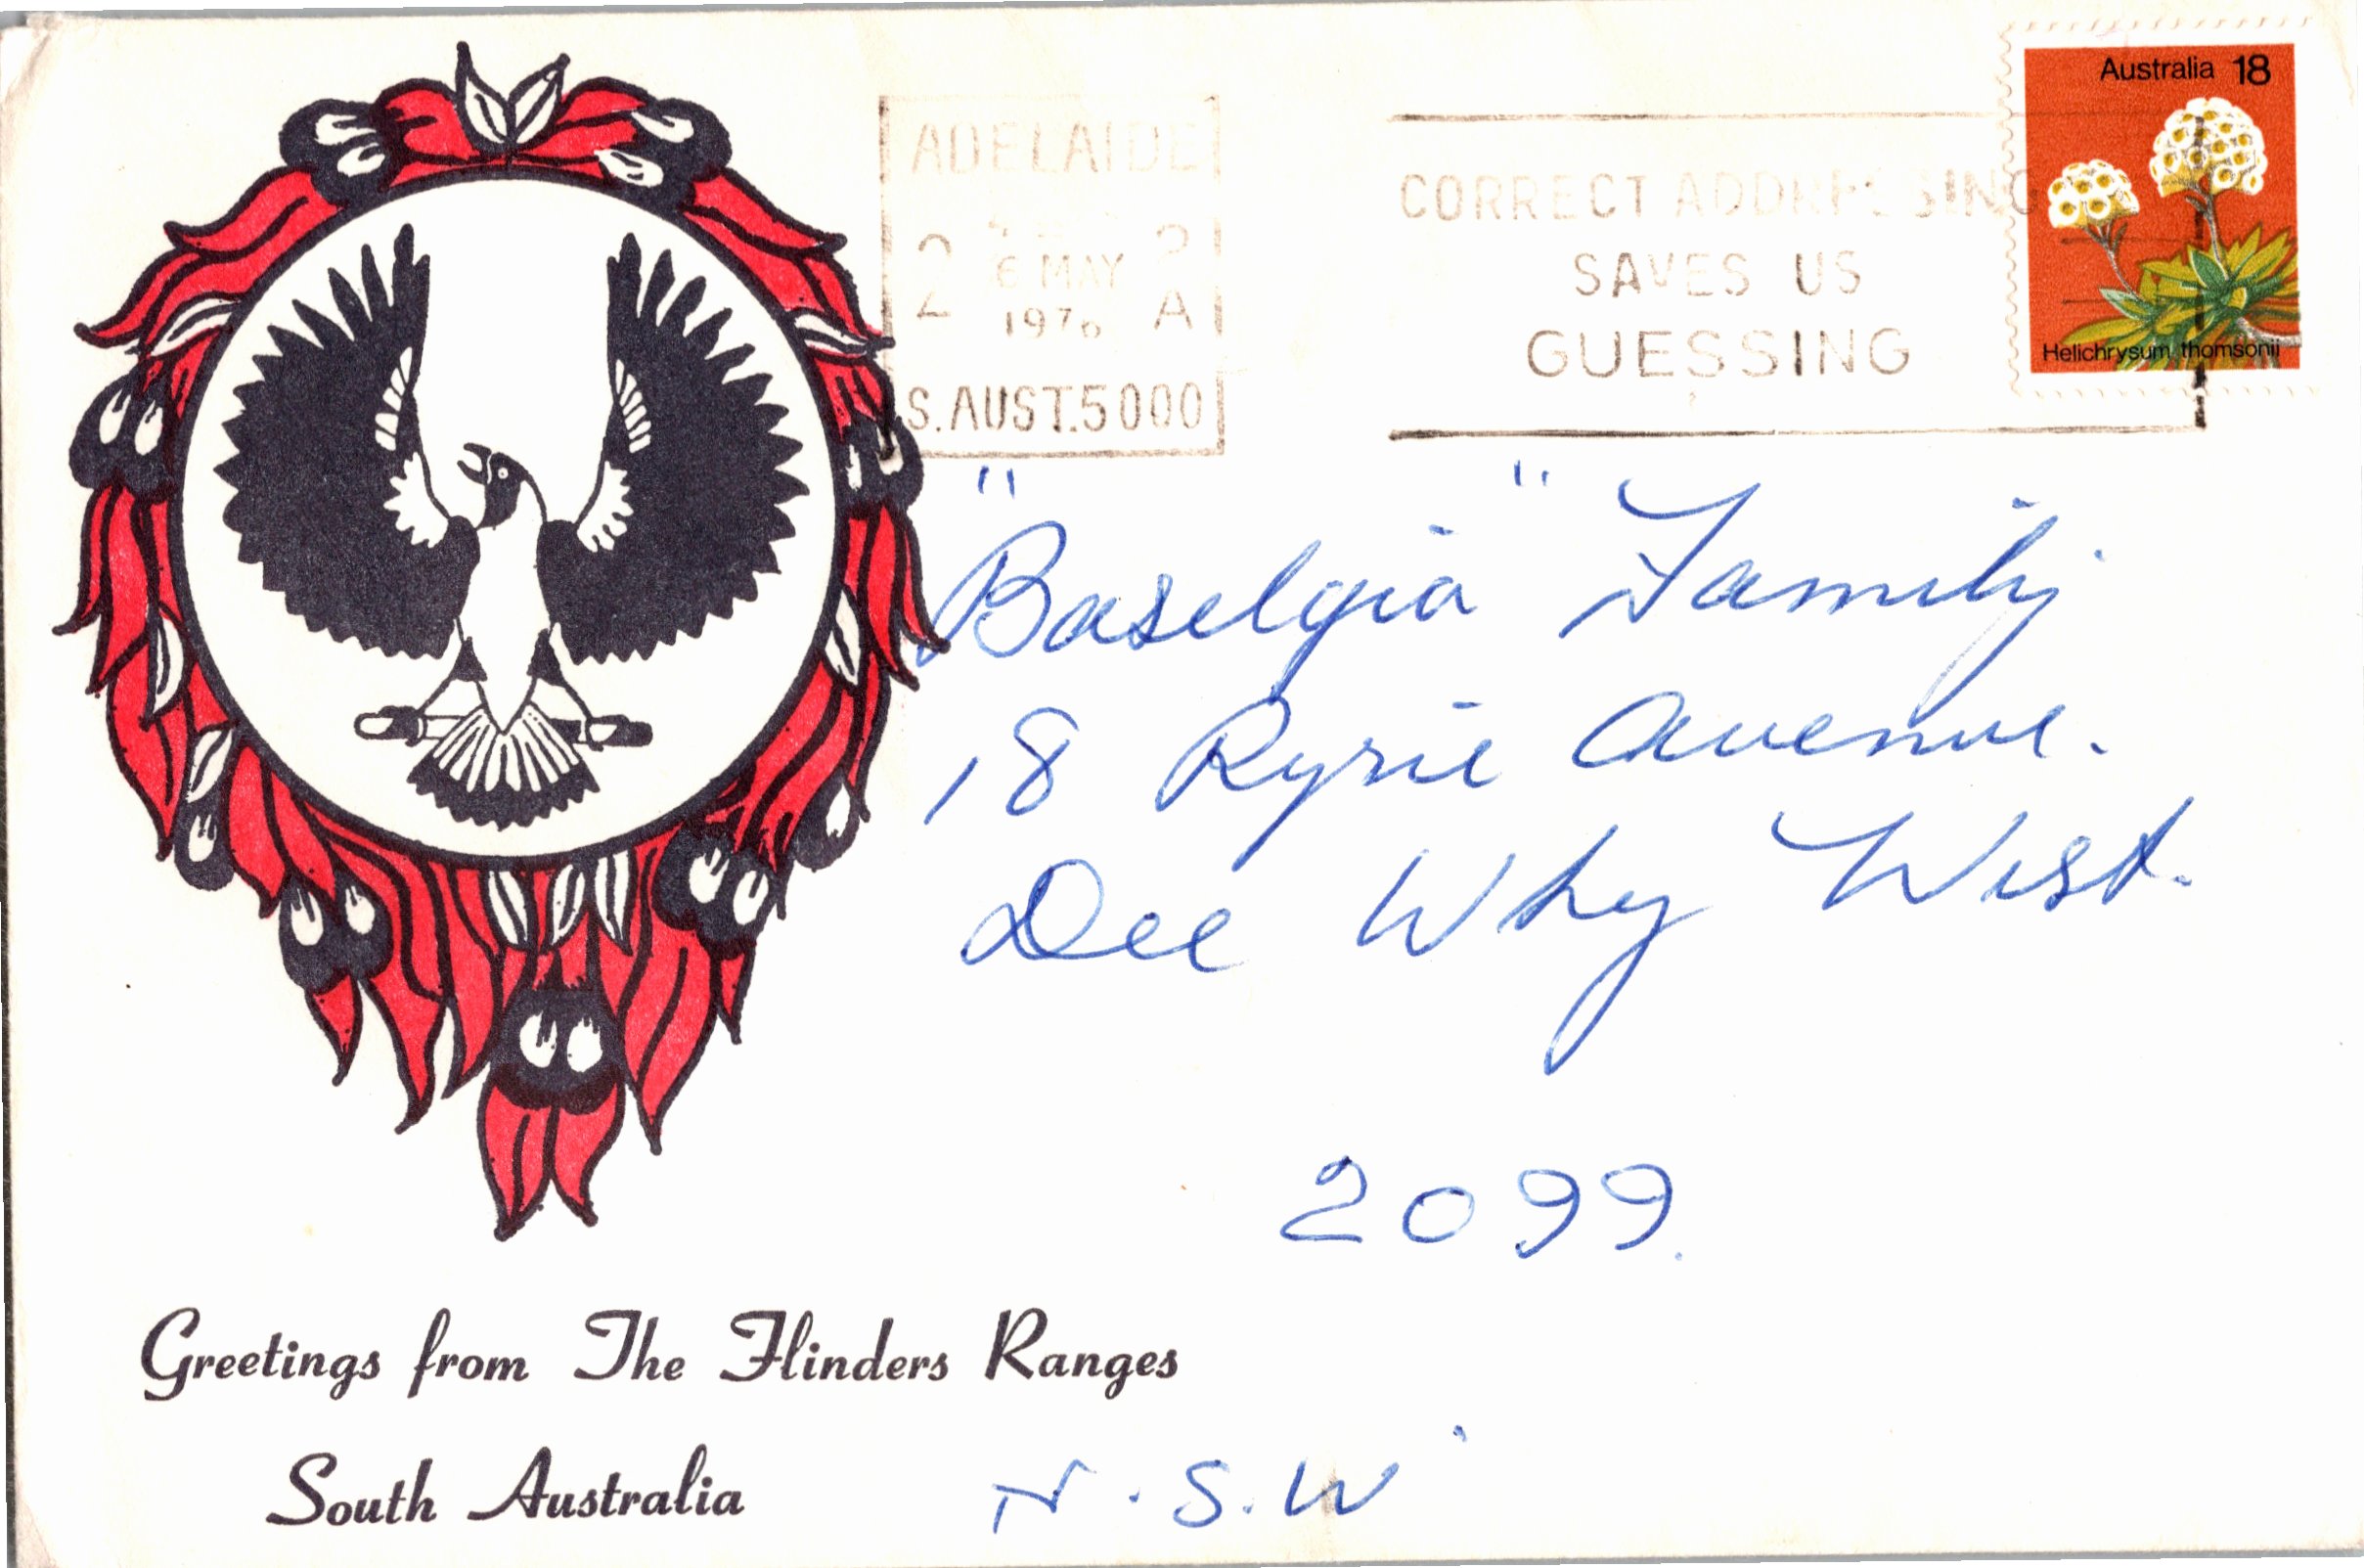 Australia 18
Helichrysum thomsonii
ADELAIDE
6 MAY
1976
2 A
S. AUST. 5000
CORRECT ADDRESSING
SAVES US
GUESSING
"Baselgia" Family
18 Ryrie Avenue.
Dee Why West.
2099.
Greetings from The Flinders Ranges
South Australia
N.S.W